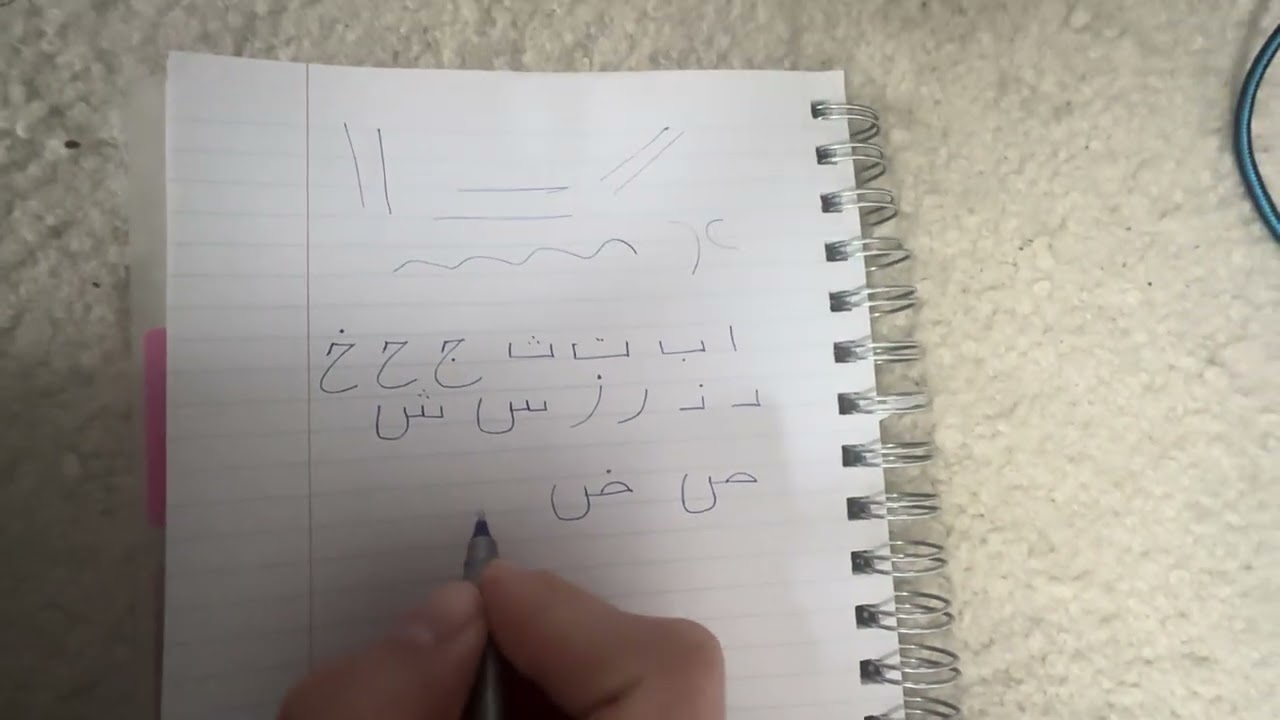 ا ب ت ث ج ح خ
د ذ ر ز س ش
ص ض